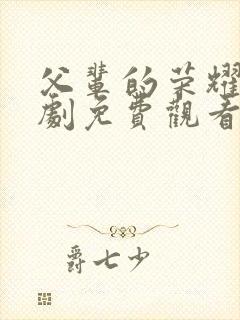 父輩的榮耀
劇免費觀看
爵七少